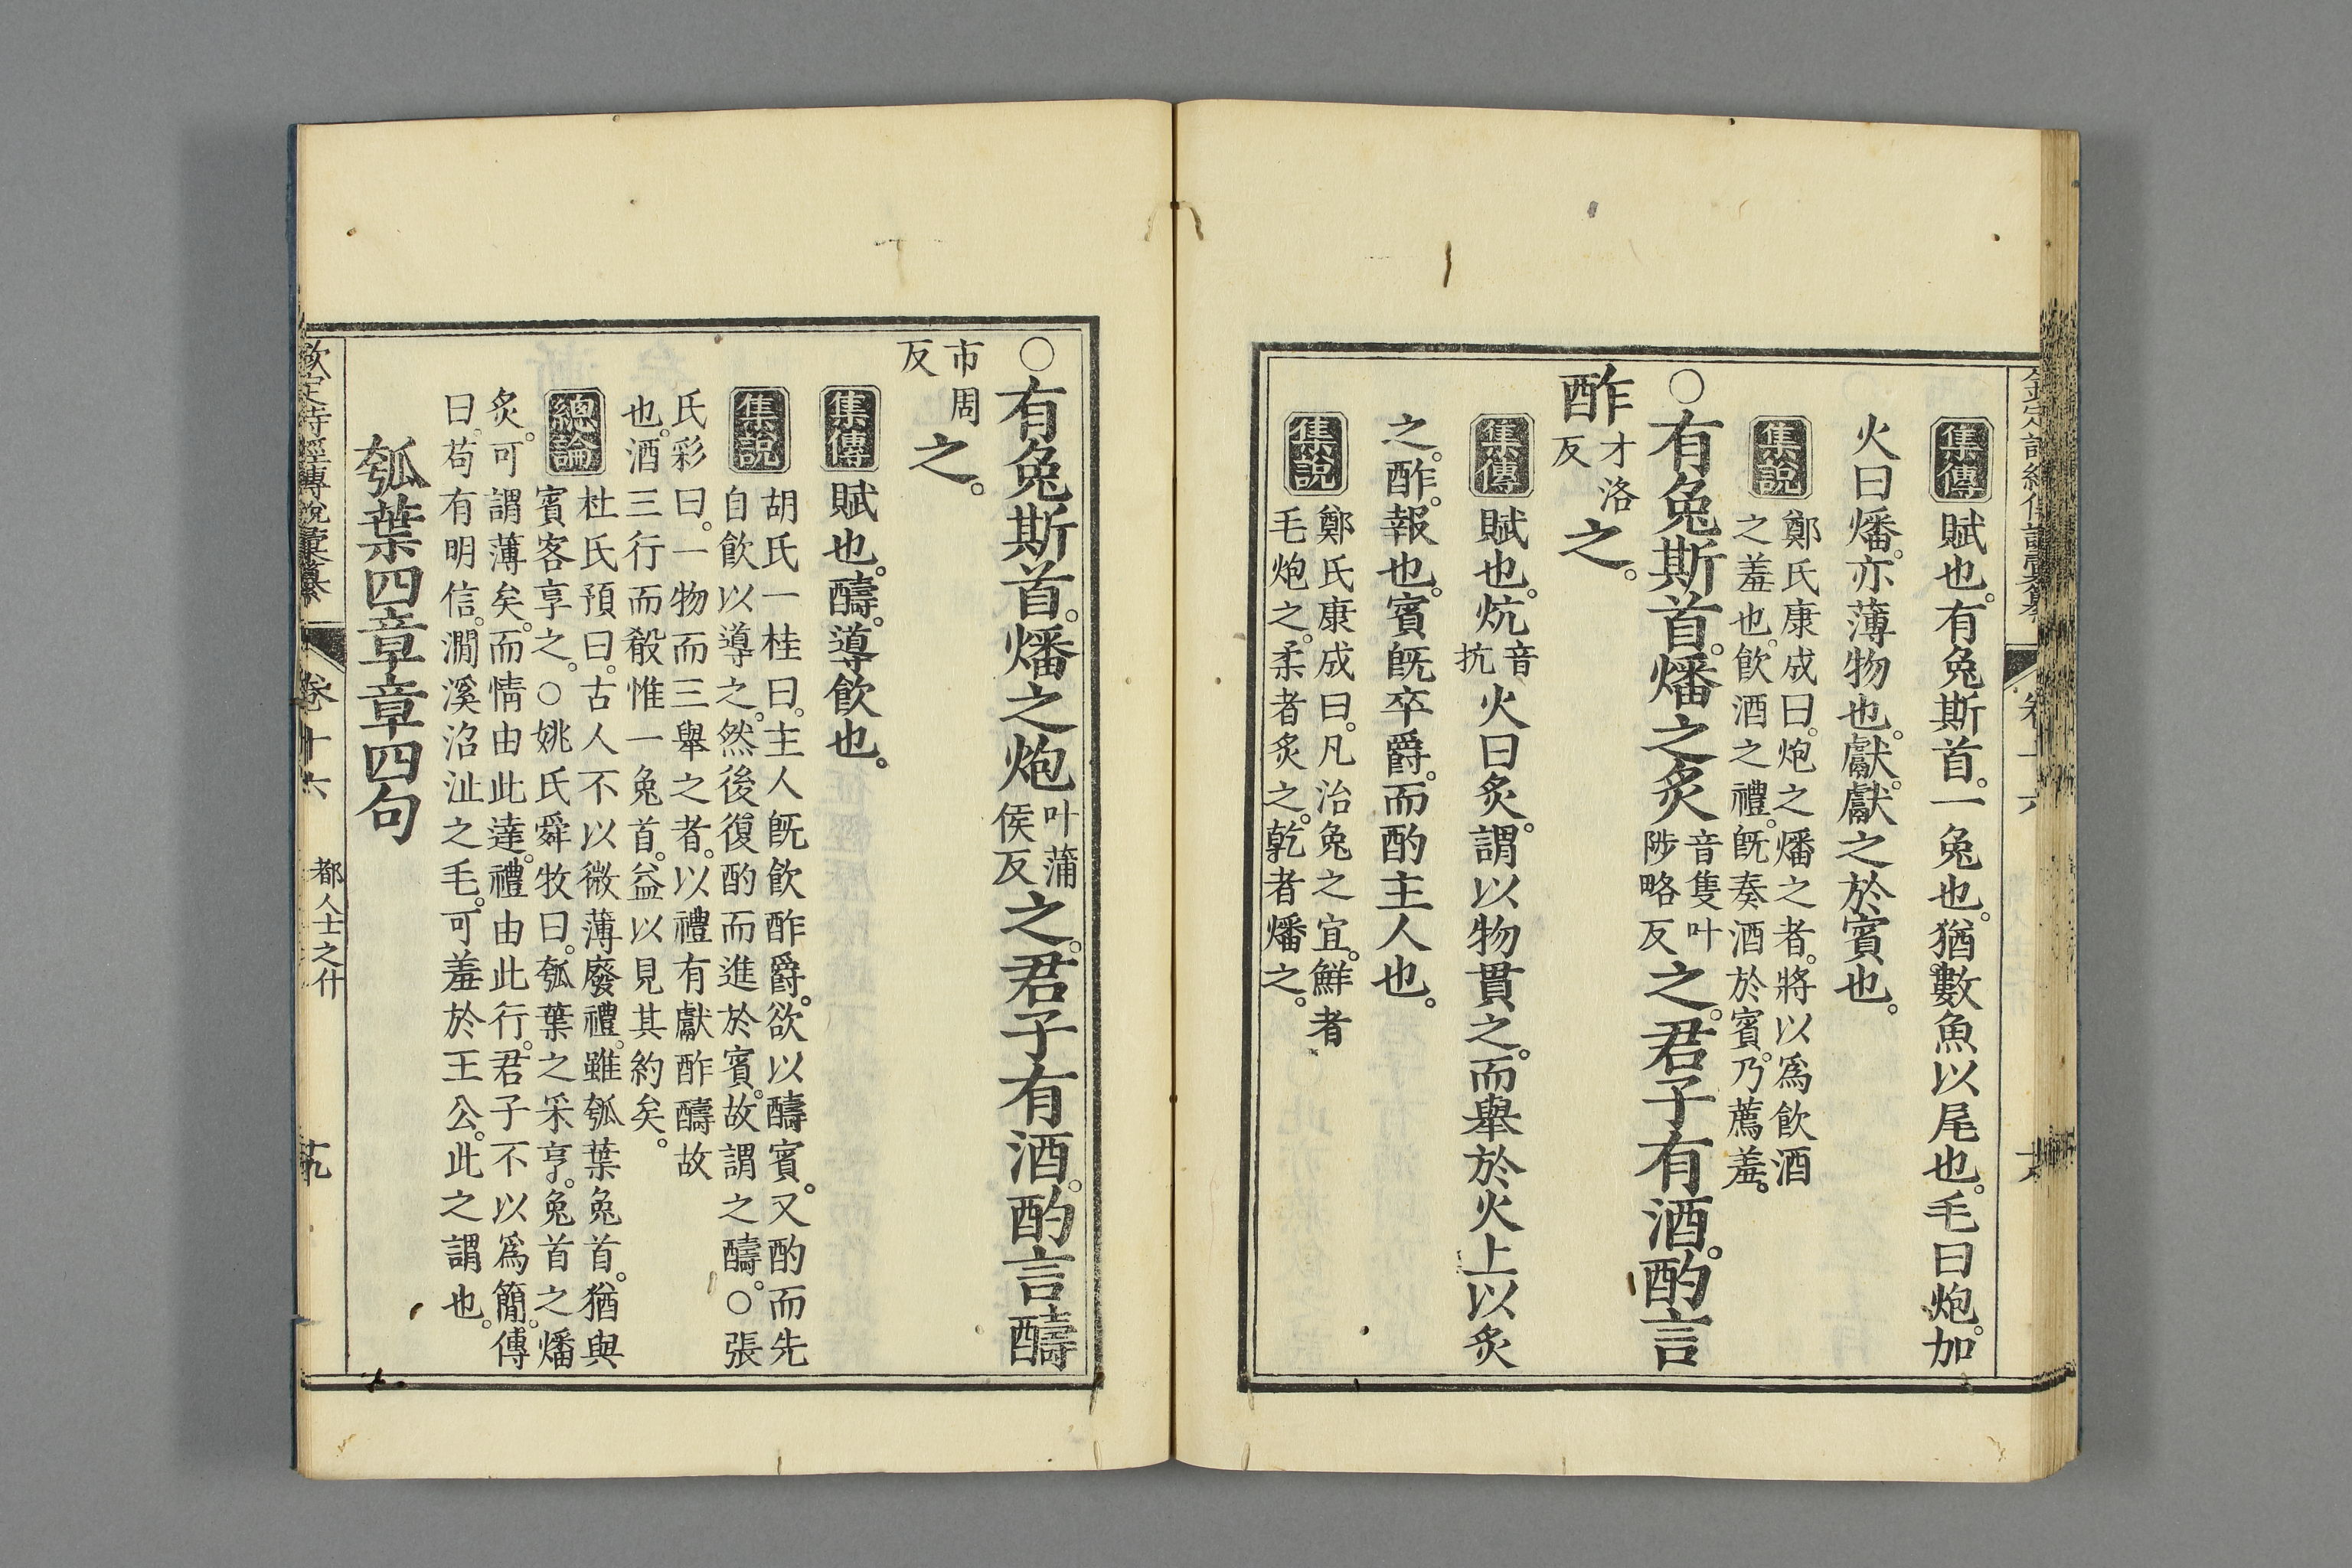 集傳 賦也。有兔斯首。一兔也。猶數魚以尾也。毛曰炮。加
火曰燔。亦薄物也。獻。獻之於賓也。
集說 鄭氏康成曰。炮之燔之者。將以爲飲酒
之羞也。飲酒之禮。旣奏酒於賓。乃薦羞。
○有兔斯首。燔之炙音隻叶陟略反之。君子有酒。酌言
酢才洛反之。
集傳 賦也。炕音抗火曰炙。謂以物貫之。而舉於火上以炙
之。酢。報也。賓旣卒爵。而酌主人也。
集說 鄭氏康成曰。凡治兔之宜。鮮者
毛炮之。柔者炙之。乾者燔之。
○有兔斯首。燔之炮叶蒲侯反之。君子有酒。酌言醻
市周反之。
集傳 賦也。醻。導飲也。
集說 胡氏一桂曰。主人旣飲酢爵。欲以醻賓。又酌而先
自飲以導之。然後復酌而進於賓。故謂之醻。○張
氏彩曰。一物而三舉之者。以禮有獻酢醻故
也。酒三行而殽惟一兔首。益以見其約矣。
總論 杜氏預曰。古人不以微薄廢禮。雖瓠葉兔首。猶與
賓客享之。○姚氏舜牧曰。瓠葉之采亨。兔首之燔
炙。可謂薄矣。而情由此達。禮由此行。君子不以爲簡。傳
曰。苟有明信。澗溪沼沚之毛。可羞於王公。此之謂也。
瓠葉四章章四句
欽定詩經傳說彙纂 卷十六 都人士之什 廿九